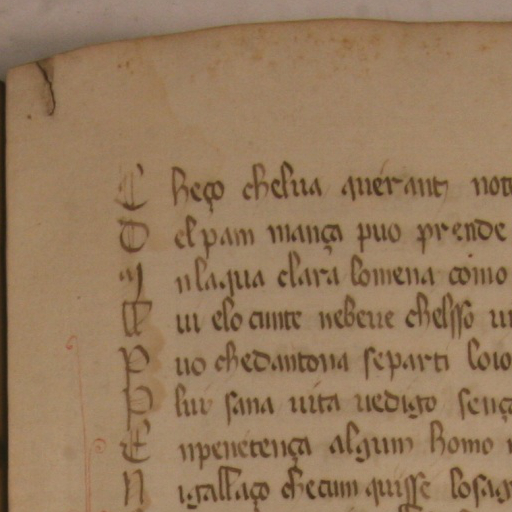 C heço chelua querant not
D el pam mança puo prende
I nlaqua clara lomena como
L ui elo cunte nebeue chelsso ui
P uo chedantona separti loio
P lur sana uita uedigo sença
E npenetença algum homo
N igallaço checum quisse losag